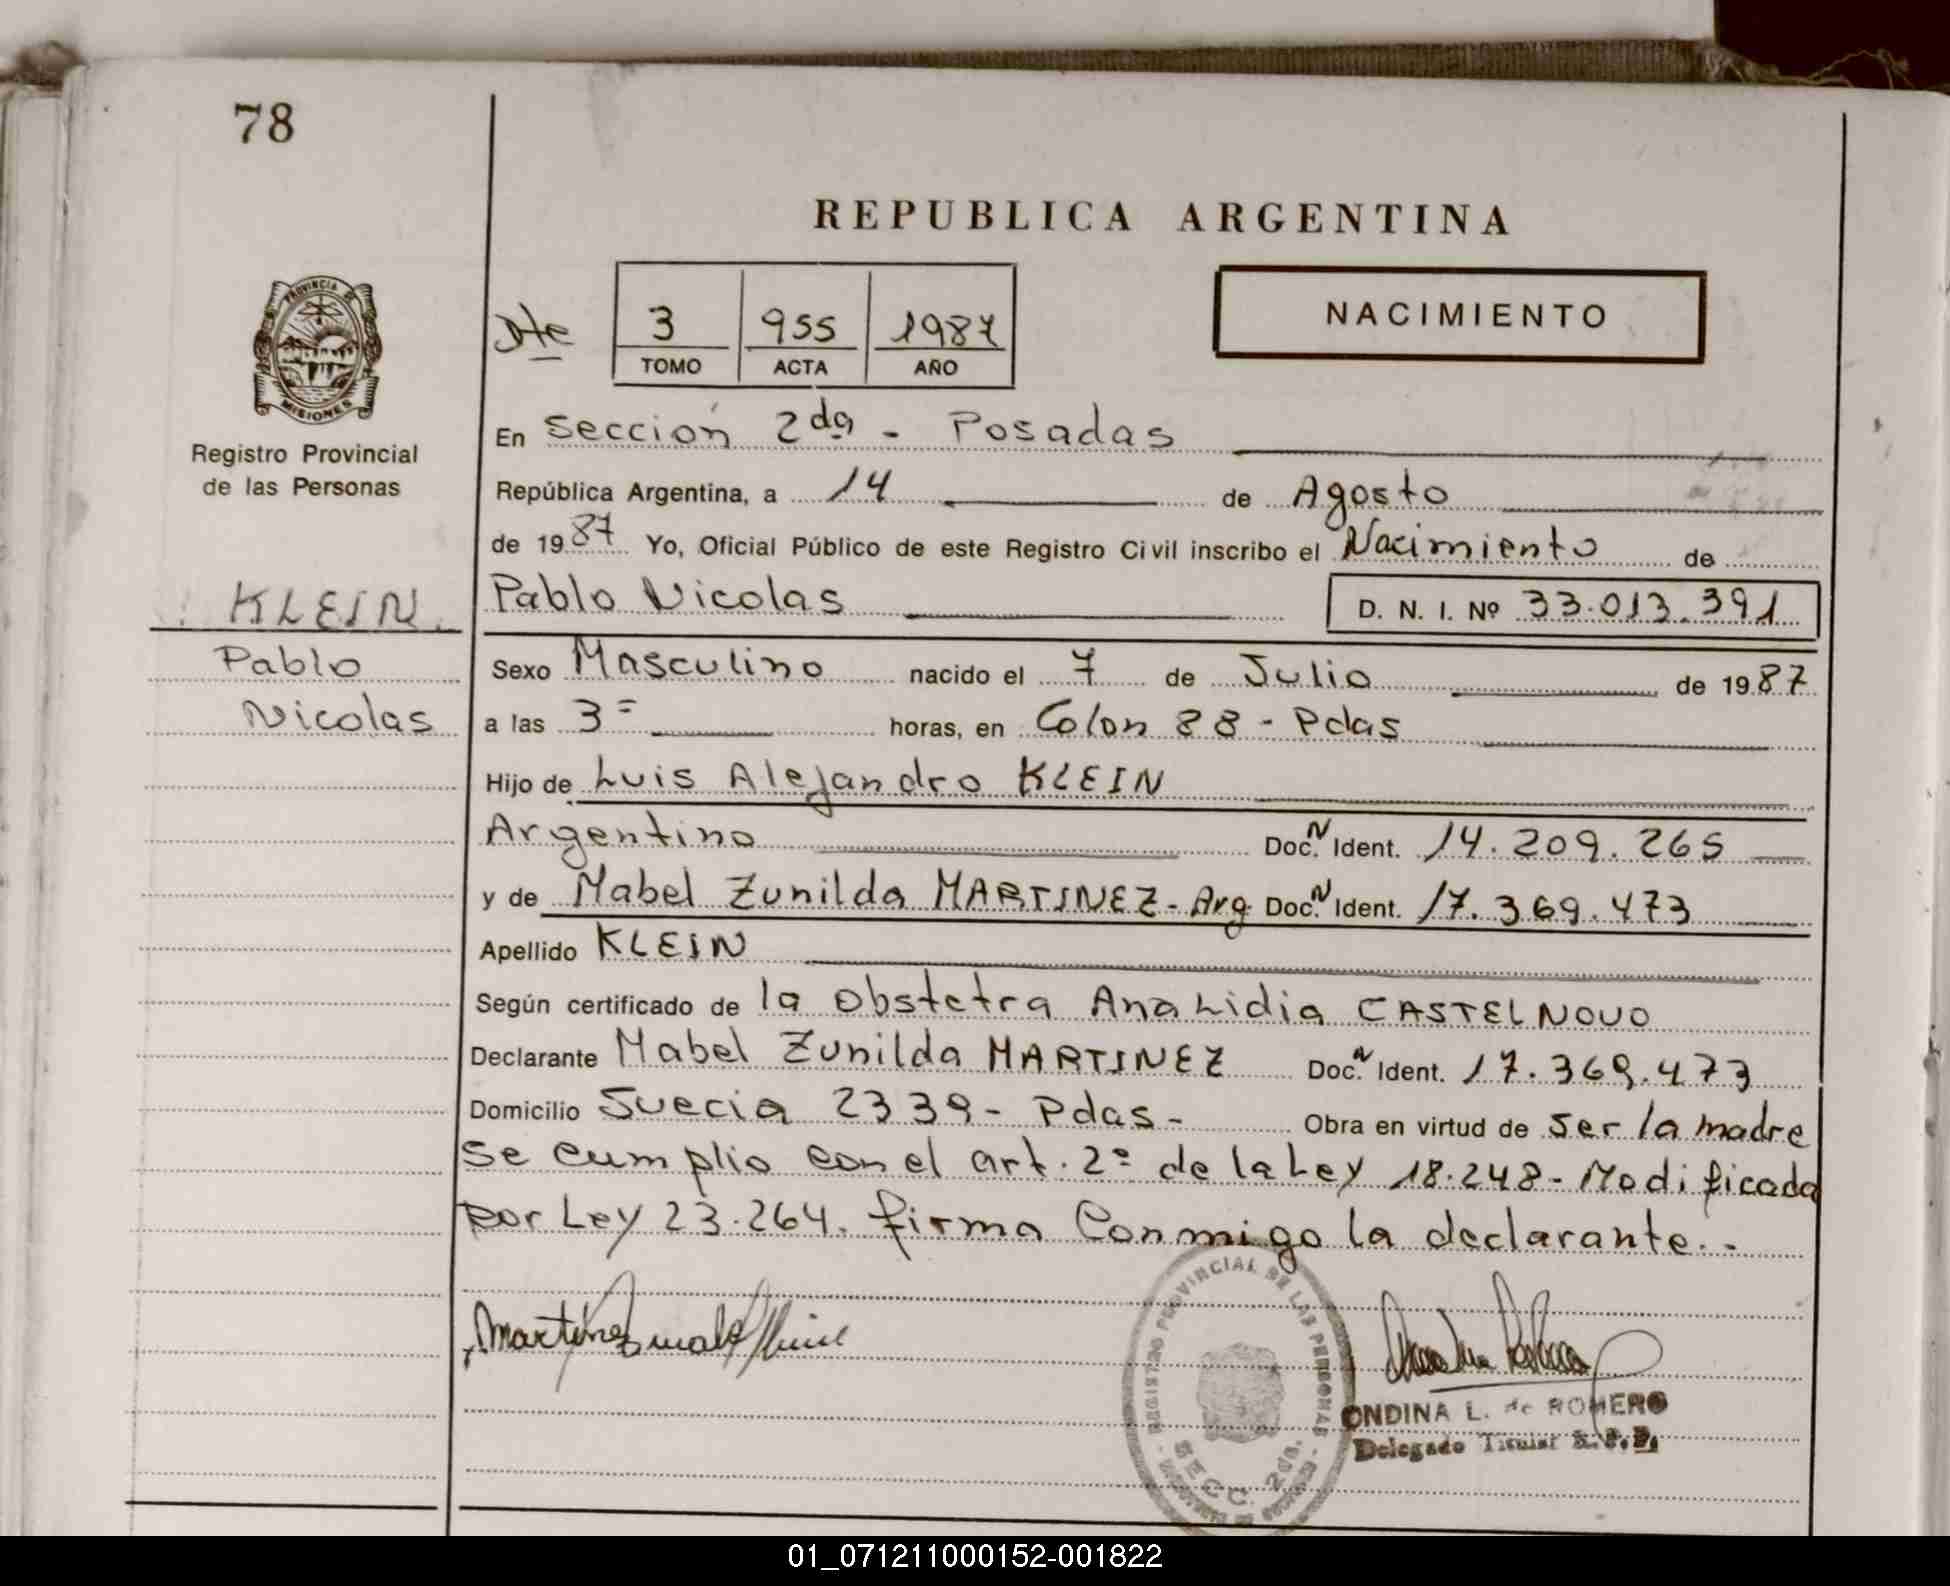 78
REPUBLICA ARGENTINA
Dte
3 955 1987
TOMO ACTA AÑO
NACIMIENTO
PROVINCIA DE
MISIONES
Registro Provincial
de las Personas
En Sección 2da - Posadas
República Argentina, a 14 de Agosto
de 1987 Yo, Oficial Público de este Registro Civil inscribo el Nacimiento de
Pablo Nicolas D. N. I. Nº 33.013.391
KLEIN
Pablo
Nicolas
Sexo Masculino nacido el 7 de Julio de 1987
a las 3= horas, en Colon 88 - Pdas
Hijo de Luis Alejandro KLEIN
Argentino Doc. N Ident. 14.209.265
y de Mabel Zunilda MARTINEZ - Arg Doc. N Ident. 17.369.473
Apellido KLEIN
Según certificado de la Obstetra Ana Lidia CASTELNOVO
Declarante Mabel Zunilda MARTINEZ Doc. N Ident. 17.369.473
Domicilio Suecia 2339 - Pdas - Obra en virtud de Ser la madre
Se cumplio con el art. 2º de la Ley 18.248 - Modificada
por Ley 23.264. firma Conmigo la declarante.-
REGISTRO PROVINCIAL DE LAS PERSONAS
SECC. 2da.
ONDINA L. de ROMERO
Delegado Titular
01_071211000152-001822